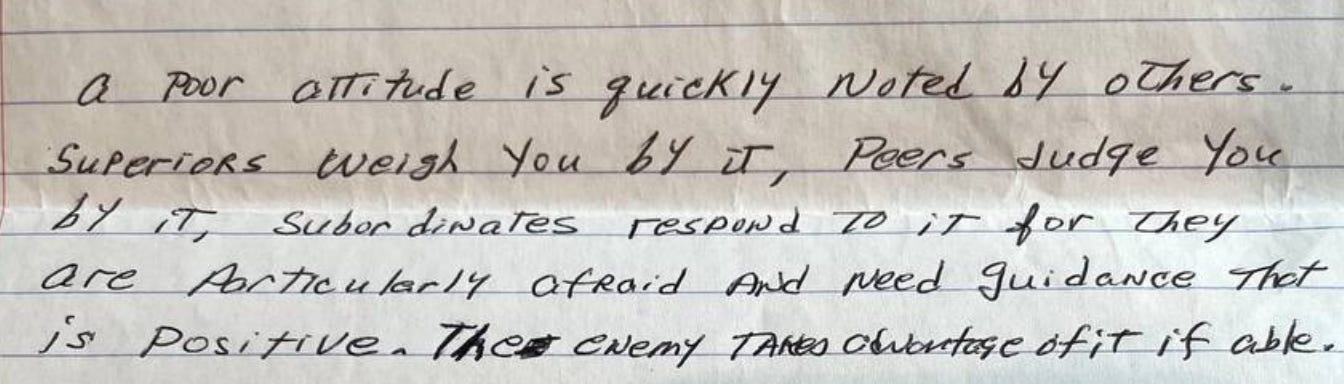 a Poor attitude is quickly Noted by others.
Superiors weigh You by it, Peers Judge You
by it, Subordinates respond To it for They
are Particularly afraid And Need guidance That
is Positive. The enemy TAKes advantage of it if able.